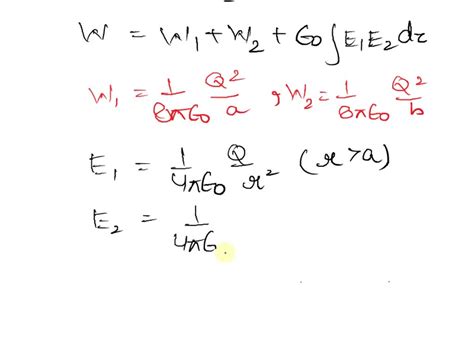 W = W₁ + W₂ + ε₀ ∫E₁E₂dτ
W₁ = 1/8πε₀ Q²/a , W₂ = 1/8πε₀ Q²/b
E₁ = 1/4πε₀ Q/r² (r>a)
E₂ = 1/4πε